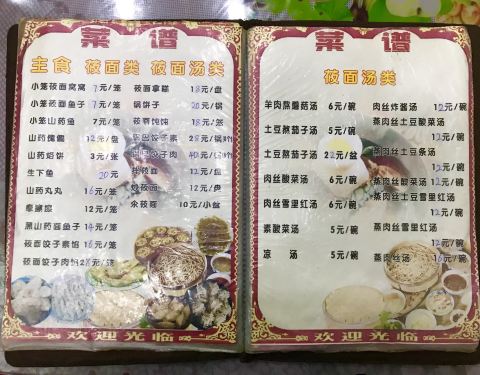 菜 谱
主食 莜面类 莜面汤类
小笼莜面窝窝 7元/笼 莜面拿糕 18元/盘
小笼莜面鱼子 7元/笼 锅饼子 20元/锅
小笼山药鱼 7元/笼 莜面饨饨 18元/笼
山药傀儡 12元/盘
山药焰饼 3元/张
生下鱼 20元
山药丸丸 16元/笼
12元/笼 余莜面 10元/小盆
黑山药莜面鱼子 14元/笼
莜面饺子素馅 16元/笼
莜面饺子肉馅 28元/笼
欢迎光临
菜 谱
莜面汤类
羊肉蘑蘑菇汤 6元/碗 肉丝炸酱汤 12元/碗
土豆熬茄子汤 5元/碗 蒸肉丝土豆酸菜汤 12元/碗
土豆熬茄子汤 22元/盆 蒸肉丝土豆条汤 12元/碗
肉丝酸菜汤 6元/碗 蒸肉丝酸菜汤 12元/碗
肉丝雪里红汤 6元/碗 蒸肉丝土豆雪里红汤 12元/碗
素酸菜汤 5元/碗 蒸肉丝雪里红汤 12元/碗
凉 汤 5元/碗 蒸肉丝汤 16元/碗
欢迎光临